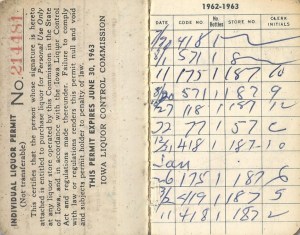 INDIVIDUAL LIQUOR PERMIT
(Not transferable)
No. 214481
This certifies that the person whose signature is hereto
attached is entitled to purchase liquor for Personal Use Only
at any liquor store operated by this Commission in the State
of Iowa, and in accordance with the Iowa Liquor Control
Act and regulations made thereunder. Failure to comply
with law or regulations renders this permit null and void
and subjects permit holder to penalty of law.
THIS PERMIT EXPIRES JUNE 30, 1963
IOWA LIQUOR CONTROL COMMISSION
1962-1963
DATE CODE NO. No. Bottles STORE NO. CLERK INITIALS
418 1
571 8
11 175 1 187 10
571 8 187 9
27 118 1 187 12
22 77 1 57
418 1 187 10
Jan
6 175 1 187 8
419 1 187 5
11 418 1 187 2